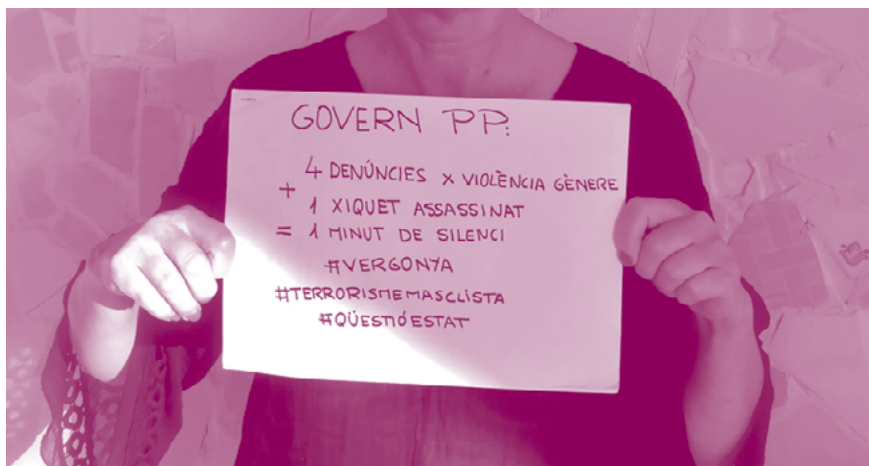 GOVERN PP:
4 DENÚNCIES X VIOLÈNCIA GÈNERE
+
1 XIQUET ASSASSINAT
= 1 MINUT DE SILENCI
#VERGONYA
#TERRORISMEMASCLISTA
#QÜESTIÓESTAT